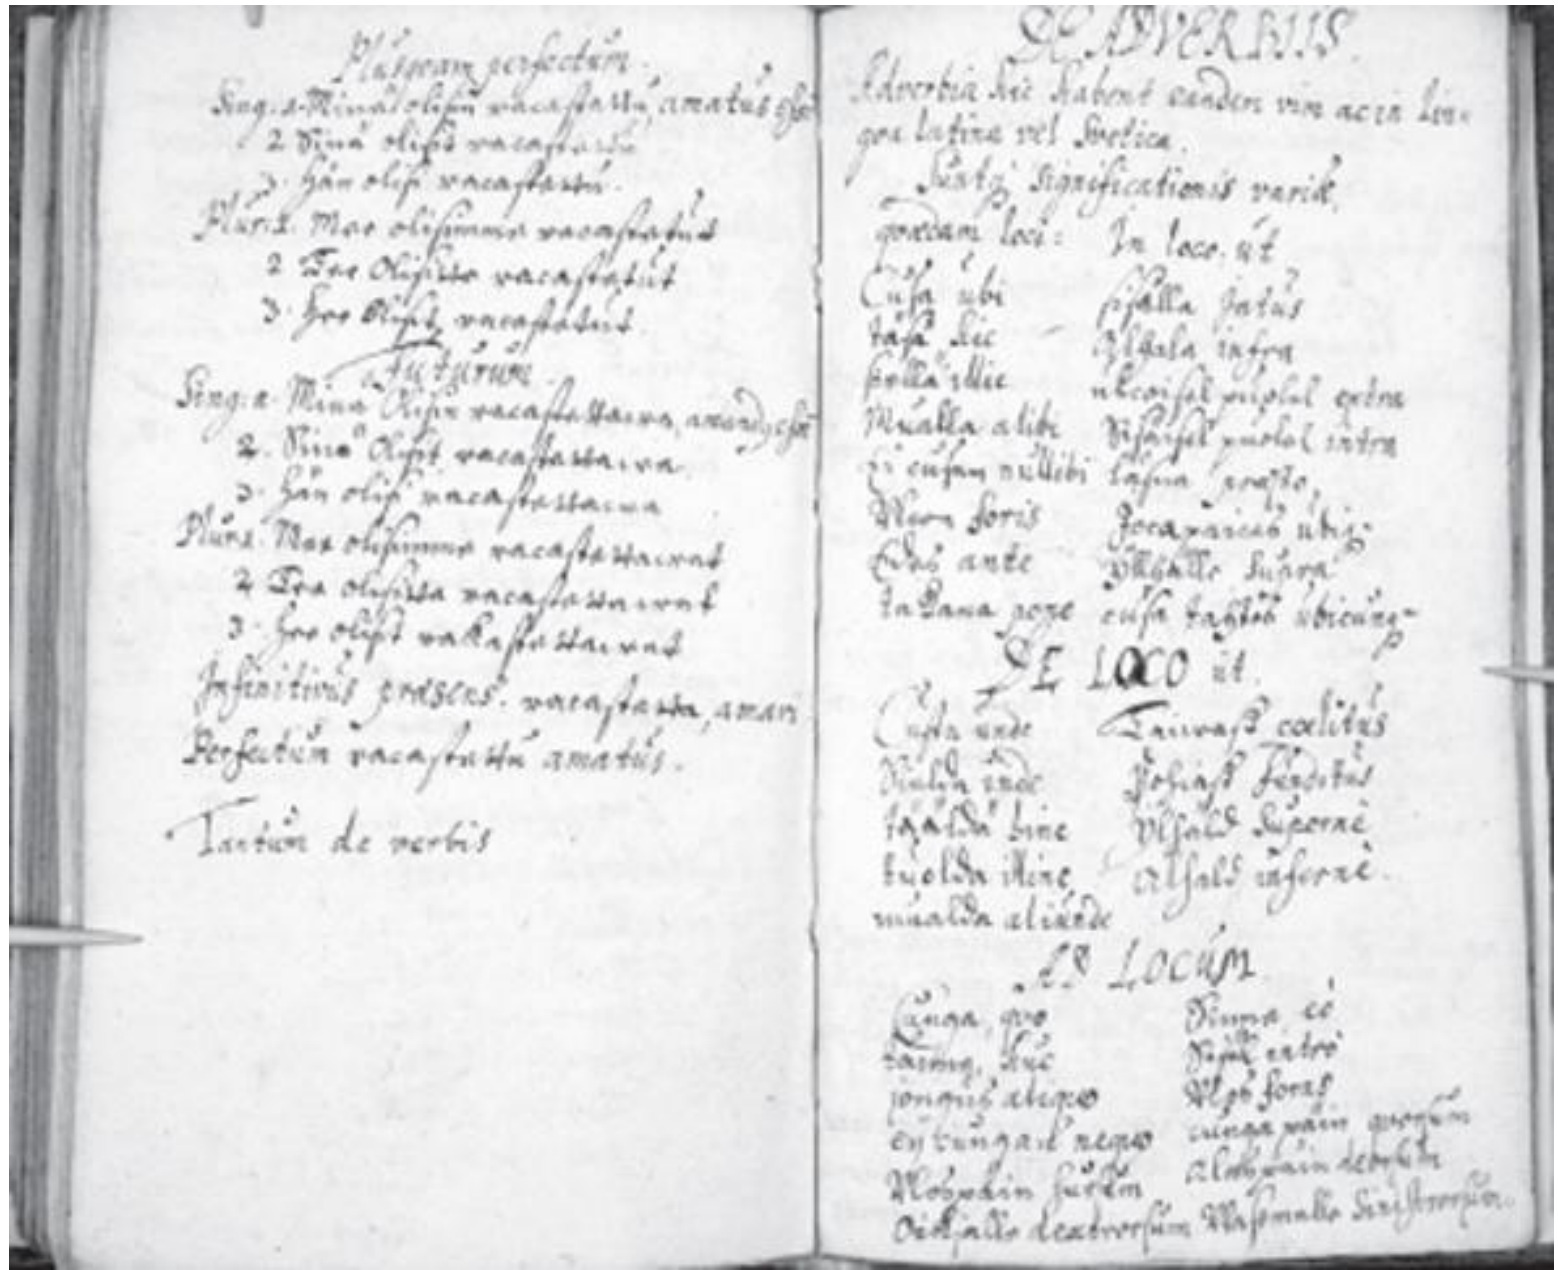 Plusqvam perfectum.
Sing. 1. Minä olisin racastettu, amatus
2 Sinä olisit racastettu
3. Hän olisi racastettu.
Plur: 1. Me olisimme racastetut
2 Te Olisitte racastetut
3. He Olisit racastetut.
Futurum.
Sing: 1. Minä Olisin racastettawa,
2. Sinä Olisit racastettawa
3. Hän olisi racastettawa
Plur 1. Me olisimme racastettawat
2 Te olisitta racastettawat
3. He olisit rakastettawat
Infinitivus præsens. racastetta, amari
Perfectum racastettu amatus.
Tantum de verbis
DE ADVERBIIS.
Adverbia hic habent eandem vim ac in lin-
gva latina vel Svetica.
Suntq; significationis variæ.
qvædam loci: In loco. ut
Cusa ubi
täsä hic
siellä illic
Mualla alibi
ei cusan nullibi
Ulcon foris
Edes ante
tacana pone
sisällä Intus
Alhala infra
ulcoisel puolel extra
Sisäisel puolel intra
läsnä præsto,
Jocapaicas ubiq;
Ylhälle supra
cusa tahtos ubicunq;
DE LOCO ut.
Custa unde
Sieldä inde
täeldä hinc
tuolda illinc
mualda aliunde
Taiwast cœlitus
Pohjast funditus
Ylhäld supernè
Alhald infernè.
AD LOCUM
Cunga, qvo
tänne, huc
jongus aliqvo
ej cungan neqvo
Ylöspäin sursum
Oickialle dextrorsum
Sinne eò
Sisäl intrò
Ulos foras
cunga päin qvorsum
alaspäin deorsum
Wasemalle sinistrorsum.